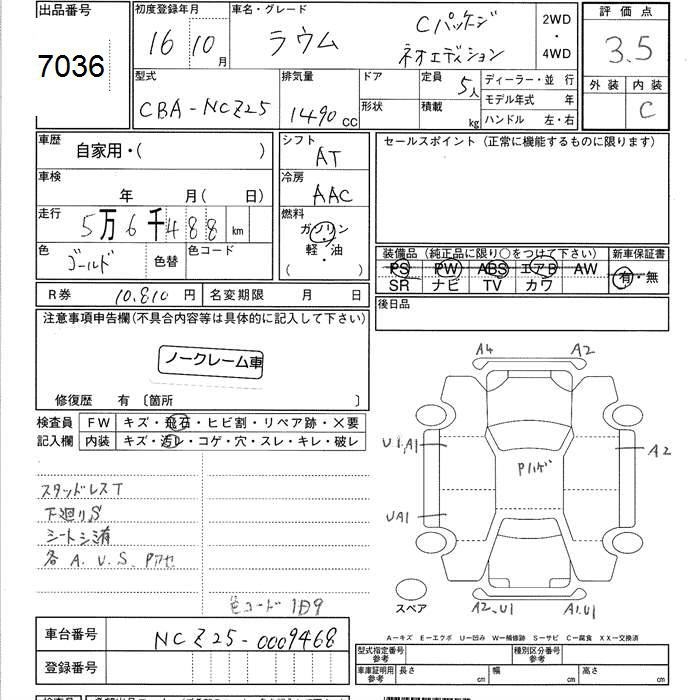 出品番号 初度登録年月 車名・グレード 評価点
7036 16 10月 ラウム Cパッケージ ネオエディション 2WD・4WD 3.5
型式 排気量 ドア 定員 5人 ディーラー・並 行 外装 内装
CBA-NCZ25 1490cc 形状 積載 kg モデル年式 年 C
ハンドル 左・右
車歴 自家用・( ) シフト AT セールスポイント (正常に機能するものに限ります)
車検 年 月(日) 冷房 AAC
走行 5万6千488km 燃料 ガソリン
軽・油
( ・ )
色 ゴールド 色替 色コード 装備品 (純正品に限り○をつけて下さい) 新車保証書
PS PW ABS エアB AW 有・無
SR ナビ TV カワ
R券 10,810円 名変期限 月 日 後日品
注意事項申告欄(不具合内容等は具体的に記入して下さい)
ノークレーム車
修復歴 有 〔箇所 〕
検査員 FW キズ・飛石・ヒビ割・リペア跡・×要
記入欄 内装 キズ・汚レ・コゲ・穴・スレ・キレ・破レ
A4 A2
U1,A1 A2
Pハゲ
UA1
スタッドレスT
下廻りS
シートシミ有
各A.U.S.Pアセ
色コード 1D9
スペア A2,U1 A1,U1
車台番号 NCZ25-0009468
A―キズ E―エクボ U―凹み W―補修跡 S―サビ C―腐食 XX―交換済
型式指定番号 参考 種別区分番号 参考
登録番号 車庫証明用 参考 長さ cm 幅 cm 高さ cm